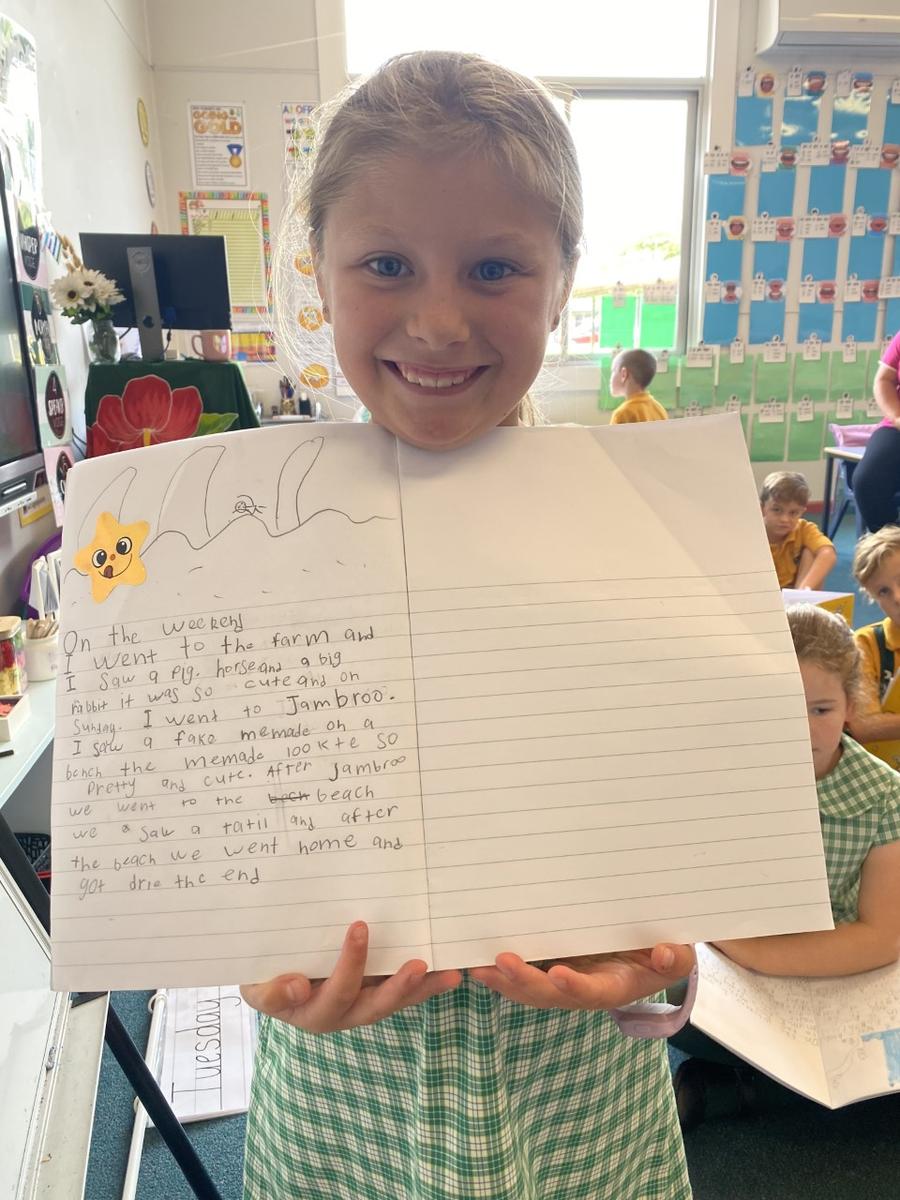 GOING
GOLD
On the weekend
I went to the farm and
I saw a pig. horse and a big
rabbit it was so cute and on
Sunday. I went to Jambroo.
I saw a fake memade on a
bench the memade look te so
Pretty and cute. After Jambroo
we went to the bech beach
we saw a tatil and after
the beach we went home and
got drie the end
Tuesday